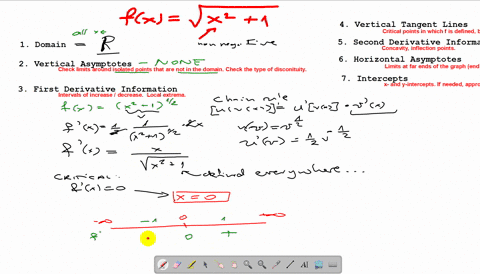 f(x) = √(x² + 1)
all x
non negative
1. Domain = R
2. Vertical Asymptotes – NONE
Check limits around isolated points that are not in the domain. Check the type of discontuity.
3. First Derivative Information
Intervals of increase / decrease. Local extrema.
f(x) = (x²-1)^1/2
f'(x) = 1/2 · 1/(x²+1)^1/2 · 2x
f'(x) = x/√(x²+1)
chain rule
[u(v(x))]' = u'(v(x)) · v'(x)
u(v) = v^1/2
u'(v) = 1/2 v^-1/2
CRITICAL:
defined everywhere...
f'(x)=0
x = 0
-∞ -1 0 1 +∞
f' 0 +
4. Vertical Tangent Lines
Critical points in which f is defined, b
5. Second Derivative Informa
Concavity, inflection points.
6. Horizontal Asymptotes
Limits at far ends of the graph (end
7. Intercepts
x- and y-intercepts. If needed, appro